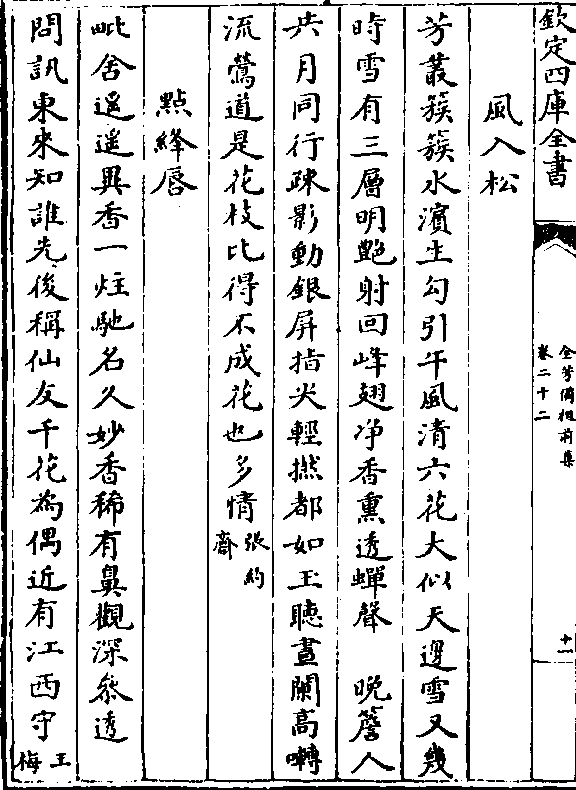 欽定四庫全書
全芳備祖前集
卷二十二
十一
風入松
芳叢簇簇水濱生勾引午風清六花大似天邊雪又幾
時雪有三層明艷射回峰翅净香熏透蟬聲　晩簷人
共月同行疎影動銀屏指尖輕撚都如玉聴晝闌高囀
流鶯道是花枝比得不成花也多情張約齋
點絳唇
毗舍遥遥異香一炷馳名久妙香稀有鼻觀深叅透
問訊東來知誰先後稱仙友千花為偶近有江西守王梅